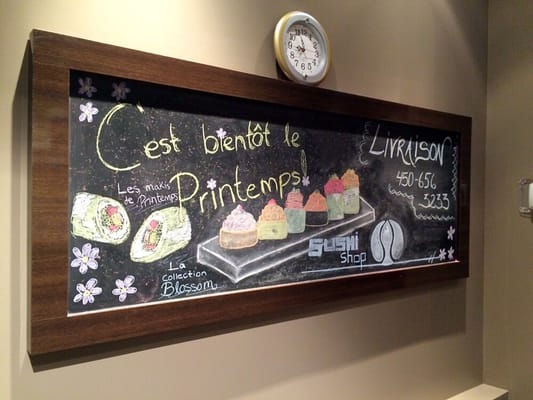 C'est bientôt le
Printemps!
Les makis
de Printemps
La
Collection
Blossom
Sushi
Shop
Livraison
450-656
3233